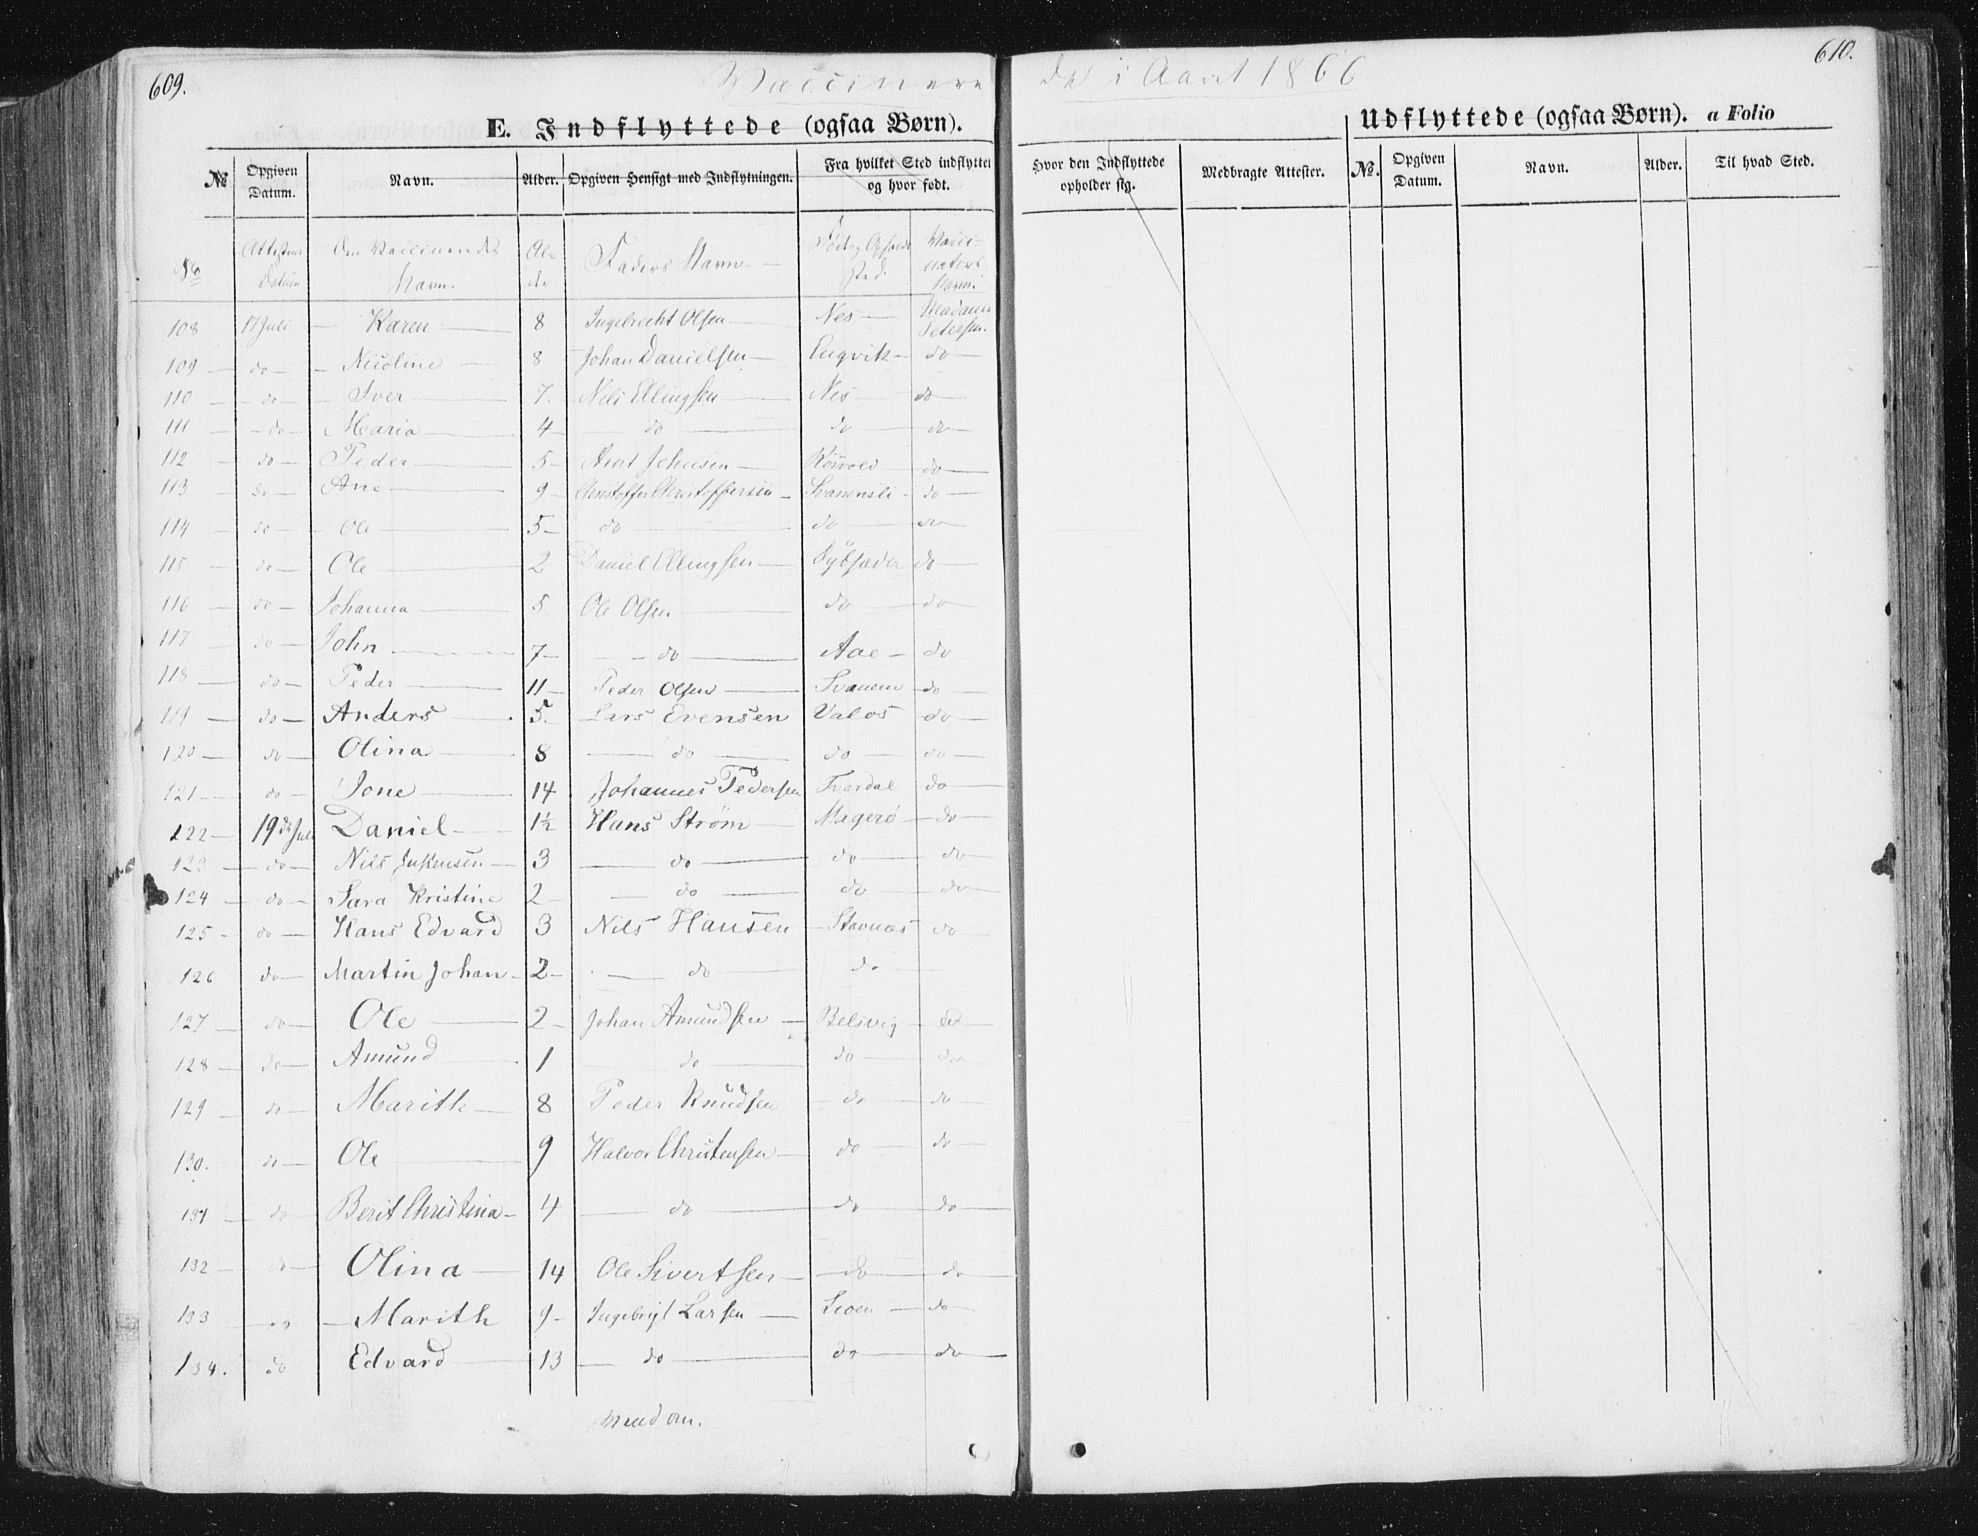 609.
610.
Vaccinere de i Aaret 1866
E. Indflyttede (ogsaa Børn).
Udflyttede (ogsaa Børn). a Folio
№ Opgiven Datum. Navn. Alder. Opgiven Hensigt med Indflytningen. Fra hvilket Sted indflyttet og hvor født. Hvor den Indflyttede opholder sig. Medbragte Attester. №. Opgiven Datum. Navn. Alder. Til hvad Sted.
No Attestens Datum Den Vaccineredes Navn. Al- der Faders Navn Sted. Vacci- nateurs Navn.
108 17 Juli Karen 8 Ingebrecht Olsen Nes Madame Petersen.
109 do Nicoline 8 Johan Danielsen Engvik do
110 do Iver 7. Nils Ellingsen Nes do
111 do Maria 4 do do do
112 do Peder 5 Arnt Johnsen do
113 do Ane 9 Christoffer Christoffersen Svanemsli do
114 do Ole 5 do do do
115 do Ole 2 Daniel Ellingsen do
116 do Johanna 5 Ole Olsen do do
117 do John 7 do Aae do
118 do Peder 11 Peder Olsen Svanem do
119 do Anders 5. Lars Evensen Valos do
120 do Olina 8 do do do
121 do Jone 14 Johannes Pedersen Tverdal do
122 19de Juli Daniel 1½ Hans Strøm Magerø do
123 do Nils 3 do do do
124 do Sara Kristine 2 do do do
125 do Hans Edvard 3 Nils Hansen Stavnæs do
126 do Martin Johan 2 do do
127 do Ole 2 Johan Amundsen Belsvig do
128 do Amund 1 do do do
129 do Marith 8 Peder Knudsen do do
130. do Ole 9 Halvor Christensen do do
131 do Berit Christina 4 do do do
132 do Olina 14 Ole Sivertsen do do
133 do Marith 9 Ingebrigt Larsen do
134. do Edvard 13 do do do
Vend om.